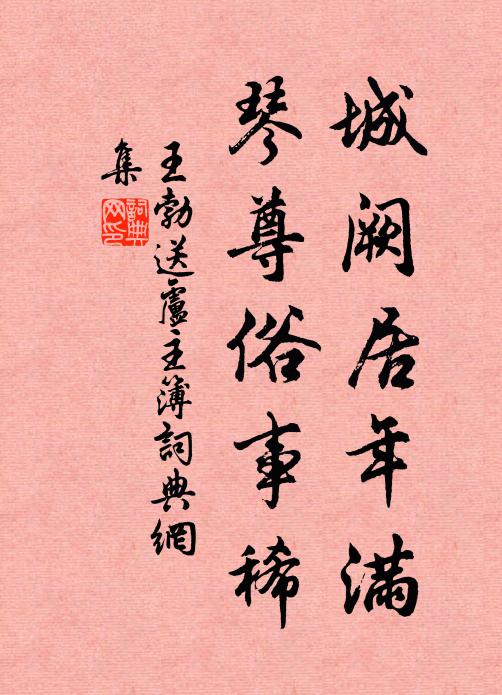 城阙居年满
琴尊俗事稀
王勃送盧主簿詞典網
集
詞典網印